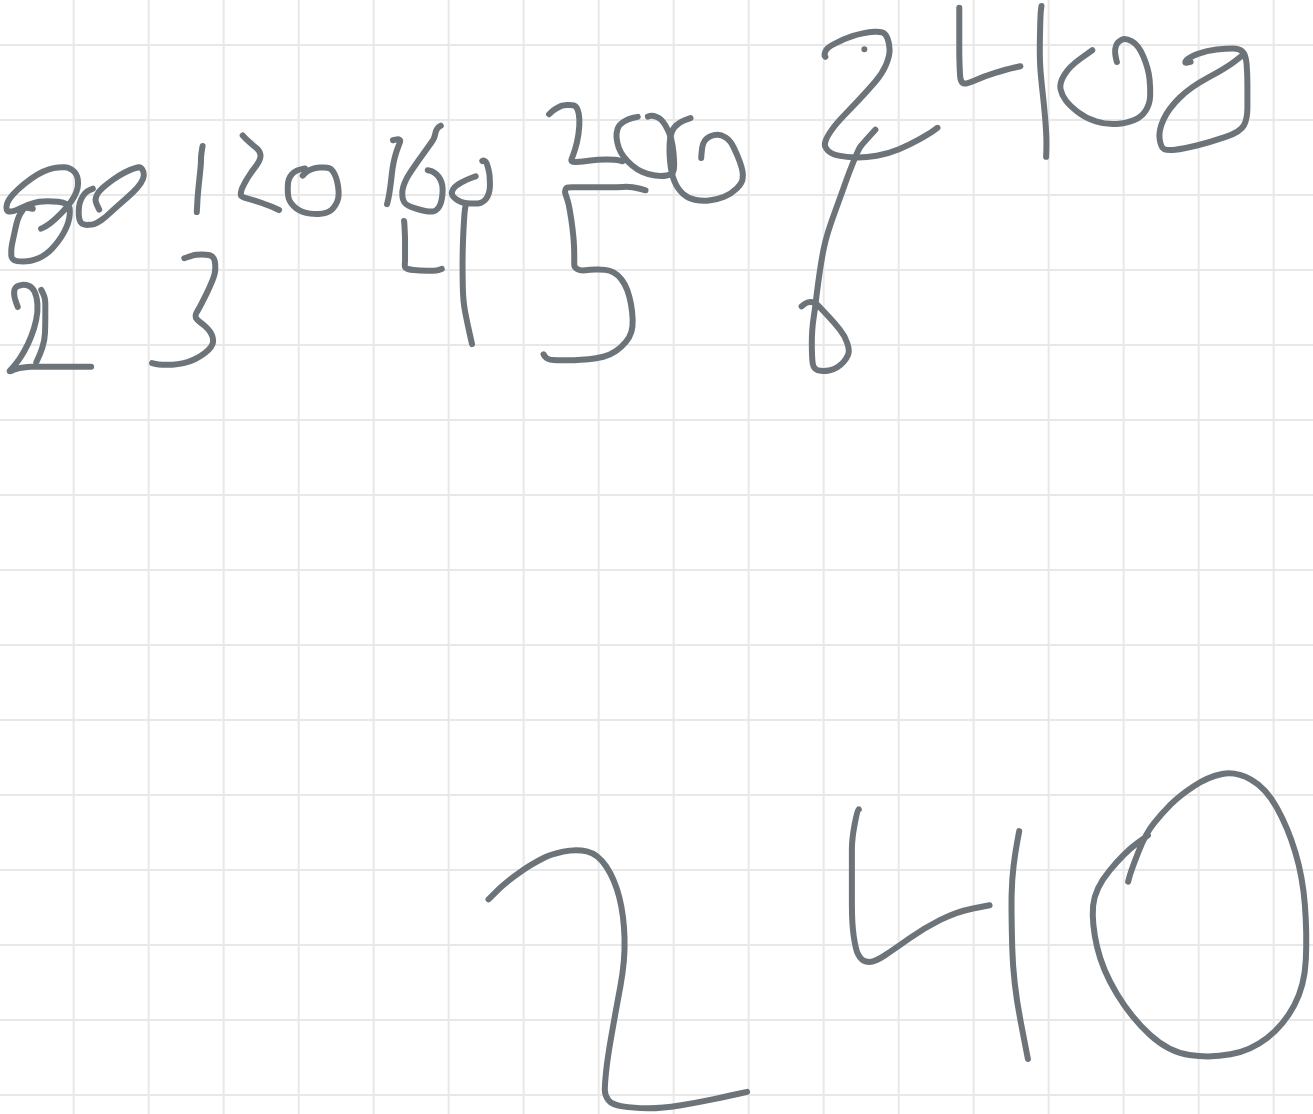 80 120 160 200 2400
2 3 4 5 6
240